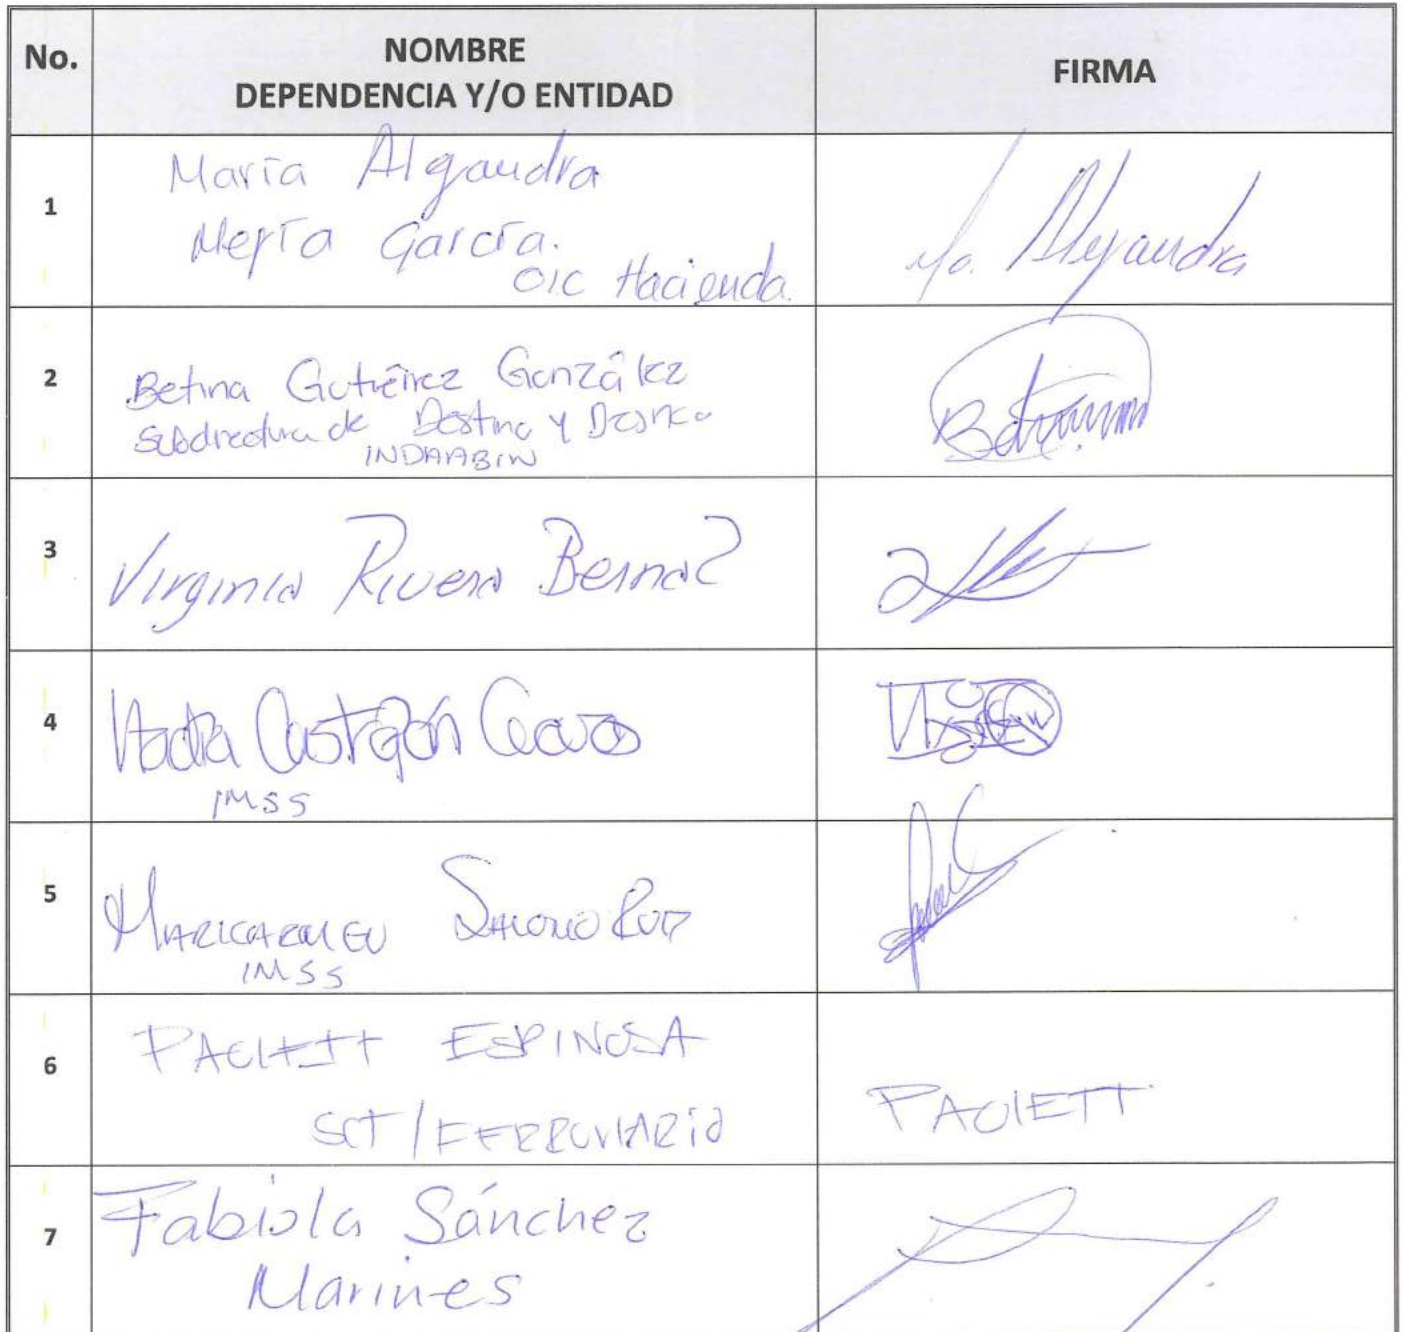 No.
NOMBRE
DEPENDENCIA Y/O ENTIDAD
FIRMA
1
María Alejandra
Mejía García.
OIC Hacienda
Ma. Alejandra
2
Betina Gutiérrez González
Subdirectora de Destino y
INDAABIN
3
Virginia Rivera Bernal
4
Nadia Castrejón
IMSS
5
MARICARMEN RUIZ
IMSS
6
PAULETT ESPINOSA
SCT/FERROVIARIO
PAULETT
7
Fabiola Sánchez
Marines